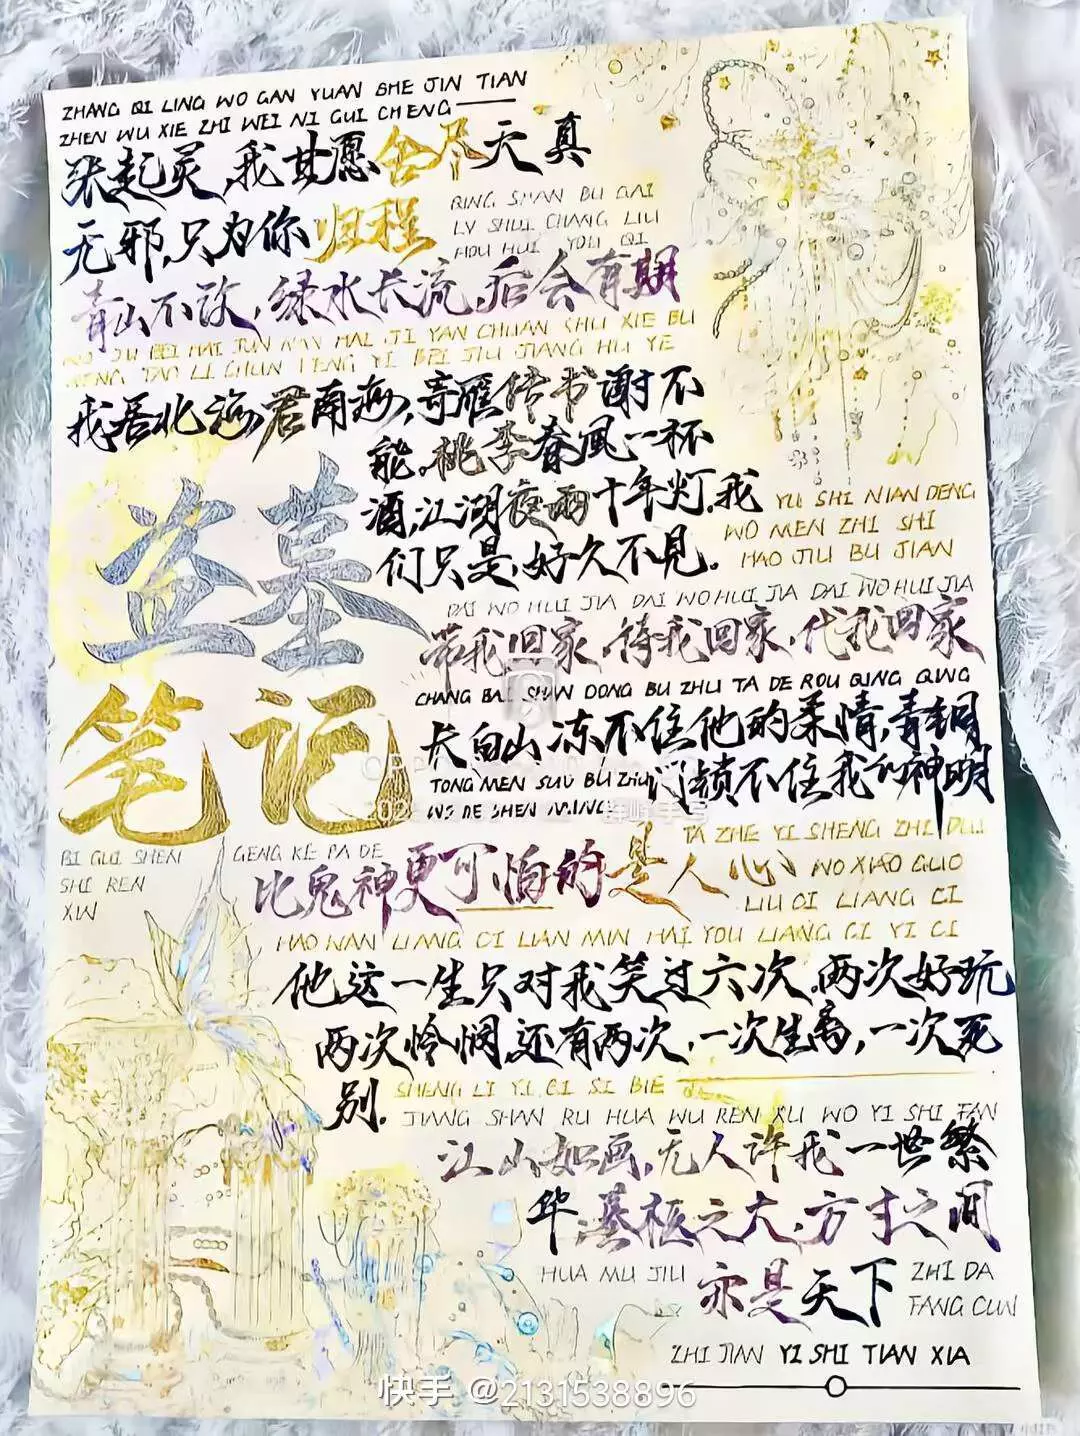 ZHANG QI LING WO GAN YUAN SHE JIN TIAN
ZHEN WU XIE ZHI WEI NI GUI CHENG
张起灵,我甘愿舍尽天真
无邪,只为你归程
QING SHAN BU GAI
LV SHUI CHANG LIU
HOU HUI YOU QI
青山不改,绿水长流,后会有期
WO JU BEI HAI JUN NAN HAI JI YAN CHUAN SHU XIE BU
NENG TAO LI CHUN FENG YI BEI JIU JIANG HU YE
我居北海君南海,寄雁传书谢不
能。桃李春風一杯
酒,江湖夜雨十年灯,我
们只是,好久不見。
YU SHI NIAN DENG
WO MEN ZHI SHI
HAO JIU BU JIAN
盗墓
笔记
DAI WO HUI JIA DAI WO HUI JIA DAI WO HUI JIA
带我回家,待我回家,代我回家
CHANG BAI SHAN DONG BU ZHU TA DE ROU QING QING
长白山冻不住他的柔情,青铜
TONG MEN SUO BU ZHU
WO DE SHEN MING
门锁不住我的神明
BI GUI SHEN
SHI REN
XIN
GENG KE PA DE
比鬼神更可怕的是人心
TA ZHE YI SHENG ZHI DUI
WO XIAO GUO
LIU CI LIANG CI
HAO WAN LIANG CI LIAN MIN HAI YOU LIANG CI YI CI
他这一生只对我笑过六次,两次好玩
两次怜悯,还有两次,一次生离,一次死
别.
SHENG LI YI CI SI BIE
JIANG SHAN RU HUA WU REN XU WO YI SHI FAN
江山如画,无人许我一世繁
华,墓柩之大,方寸之间
HUA MU JIU
亦是天下
ZHI DA
FANG CUN
ZHI JIAN YI SHI TIAN XIA
快手 @2131538896